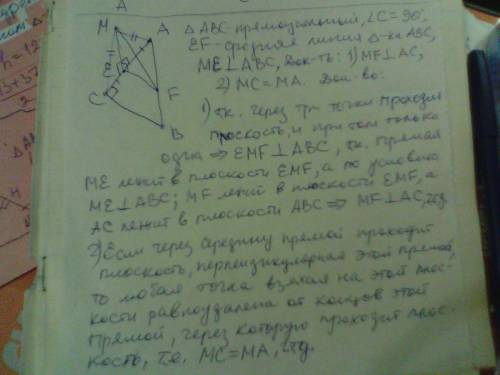 M
A
E
C
F
B
Δ ABC-прямоугольный, ∠C=90°,
EF-средняя линия Δ-ка ABC,
ME⊥ABC, Док-ть: 1) MF⊥AC,
2) MC=MA. Док-во:
1) т.к. через три точки проходит
плоскость, и при том только
одна ⇒ EMF⊥ABC, т.к. прямая
ME лежит в плоскости EMF, а по условию
ME⊥ABC; MF лежит в плоскости EMF, а
AC лежит в плоскости ABC ⇒ MF⊥AC, чтд.
2) Если через середину прямой проходит
плоскость, перпендикулярная этой прямой,
то любая точка взятая на этой плос-
кости равноудалена от концов этой
прямой, через которую проходит плос-
кость, т.е. MC=MA, чтд.